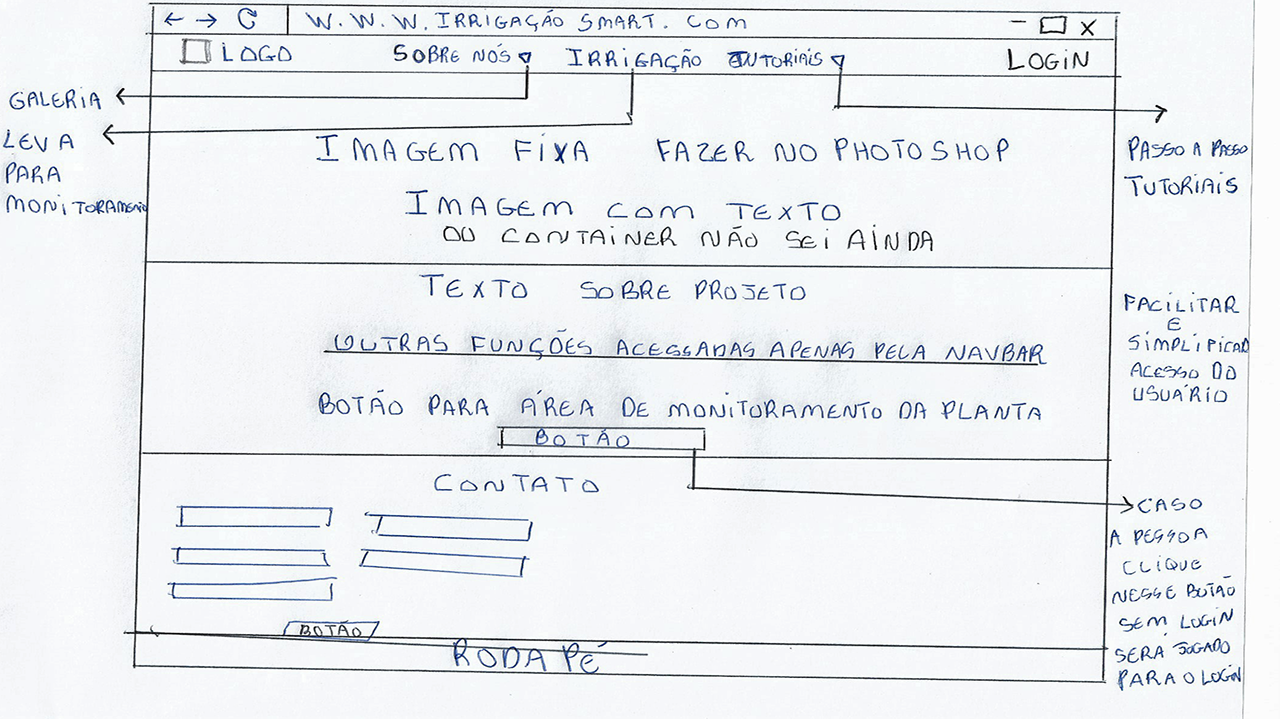 W.W.W.IRRIGAÇÃO SMART.COM
LOGO SOBRE NÓS IRRIGAÇÃO TUTORIAIS LOGIN
GALERIA
LEVA
PARA
MONITORAMENTO
IMAGEM FIXA FAZER NO PHOTOSHOP
IMAGEM COM TEXTO
OU CONTAINER NÃO SEI AINDA
PASSO A PASSO
TUTORIAIS
TEXTO SOBRE PROJETO
OUTRAS FUNÇÕES ACESSADAS APENAS PELA NAVBAR
BOTÃO PARA ÁREA DE MONITORAMENTO DA PLANTA
BOTÃO
FACILITAR
E
SIMPLIFICAR
ACESSO DO
USUÁRIO
CONTATO
BOTÃO
RODAPÉ
CASO
A PESSOA
CLIQUE
NESSE BOTÃO
SEM LOGIN
SERÁ JOGADO
PARA O LOGIN